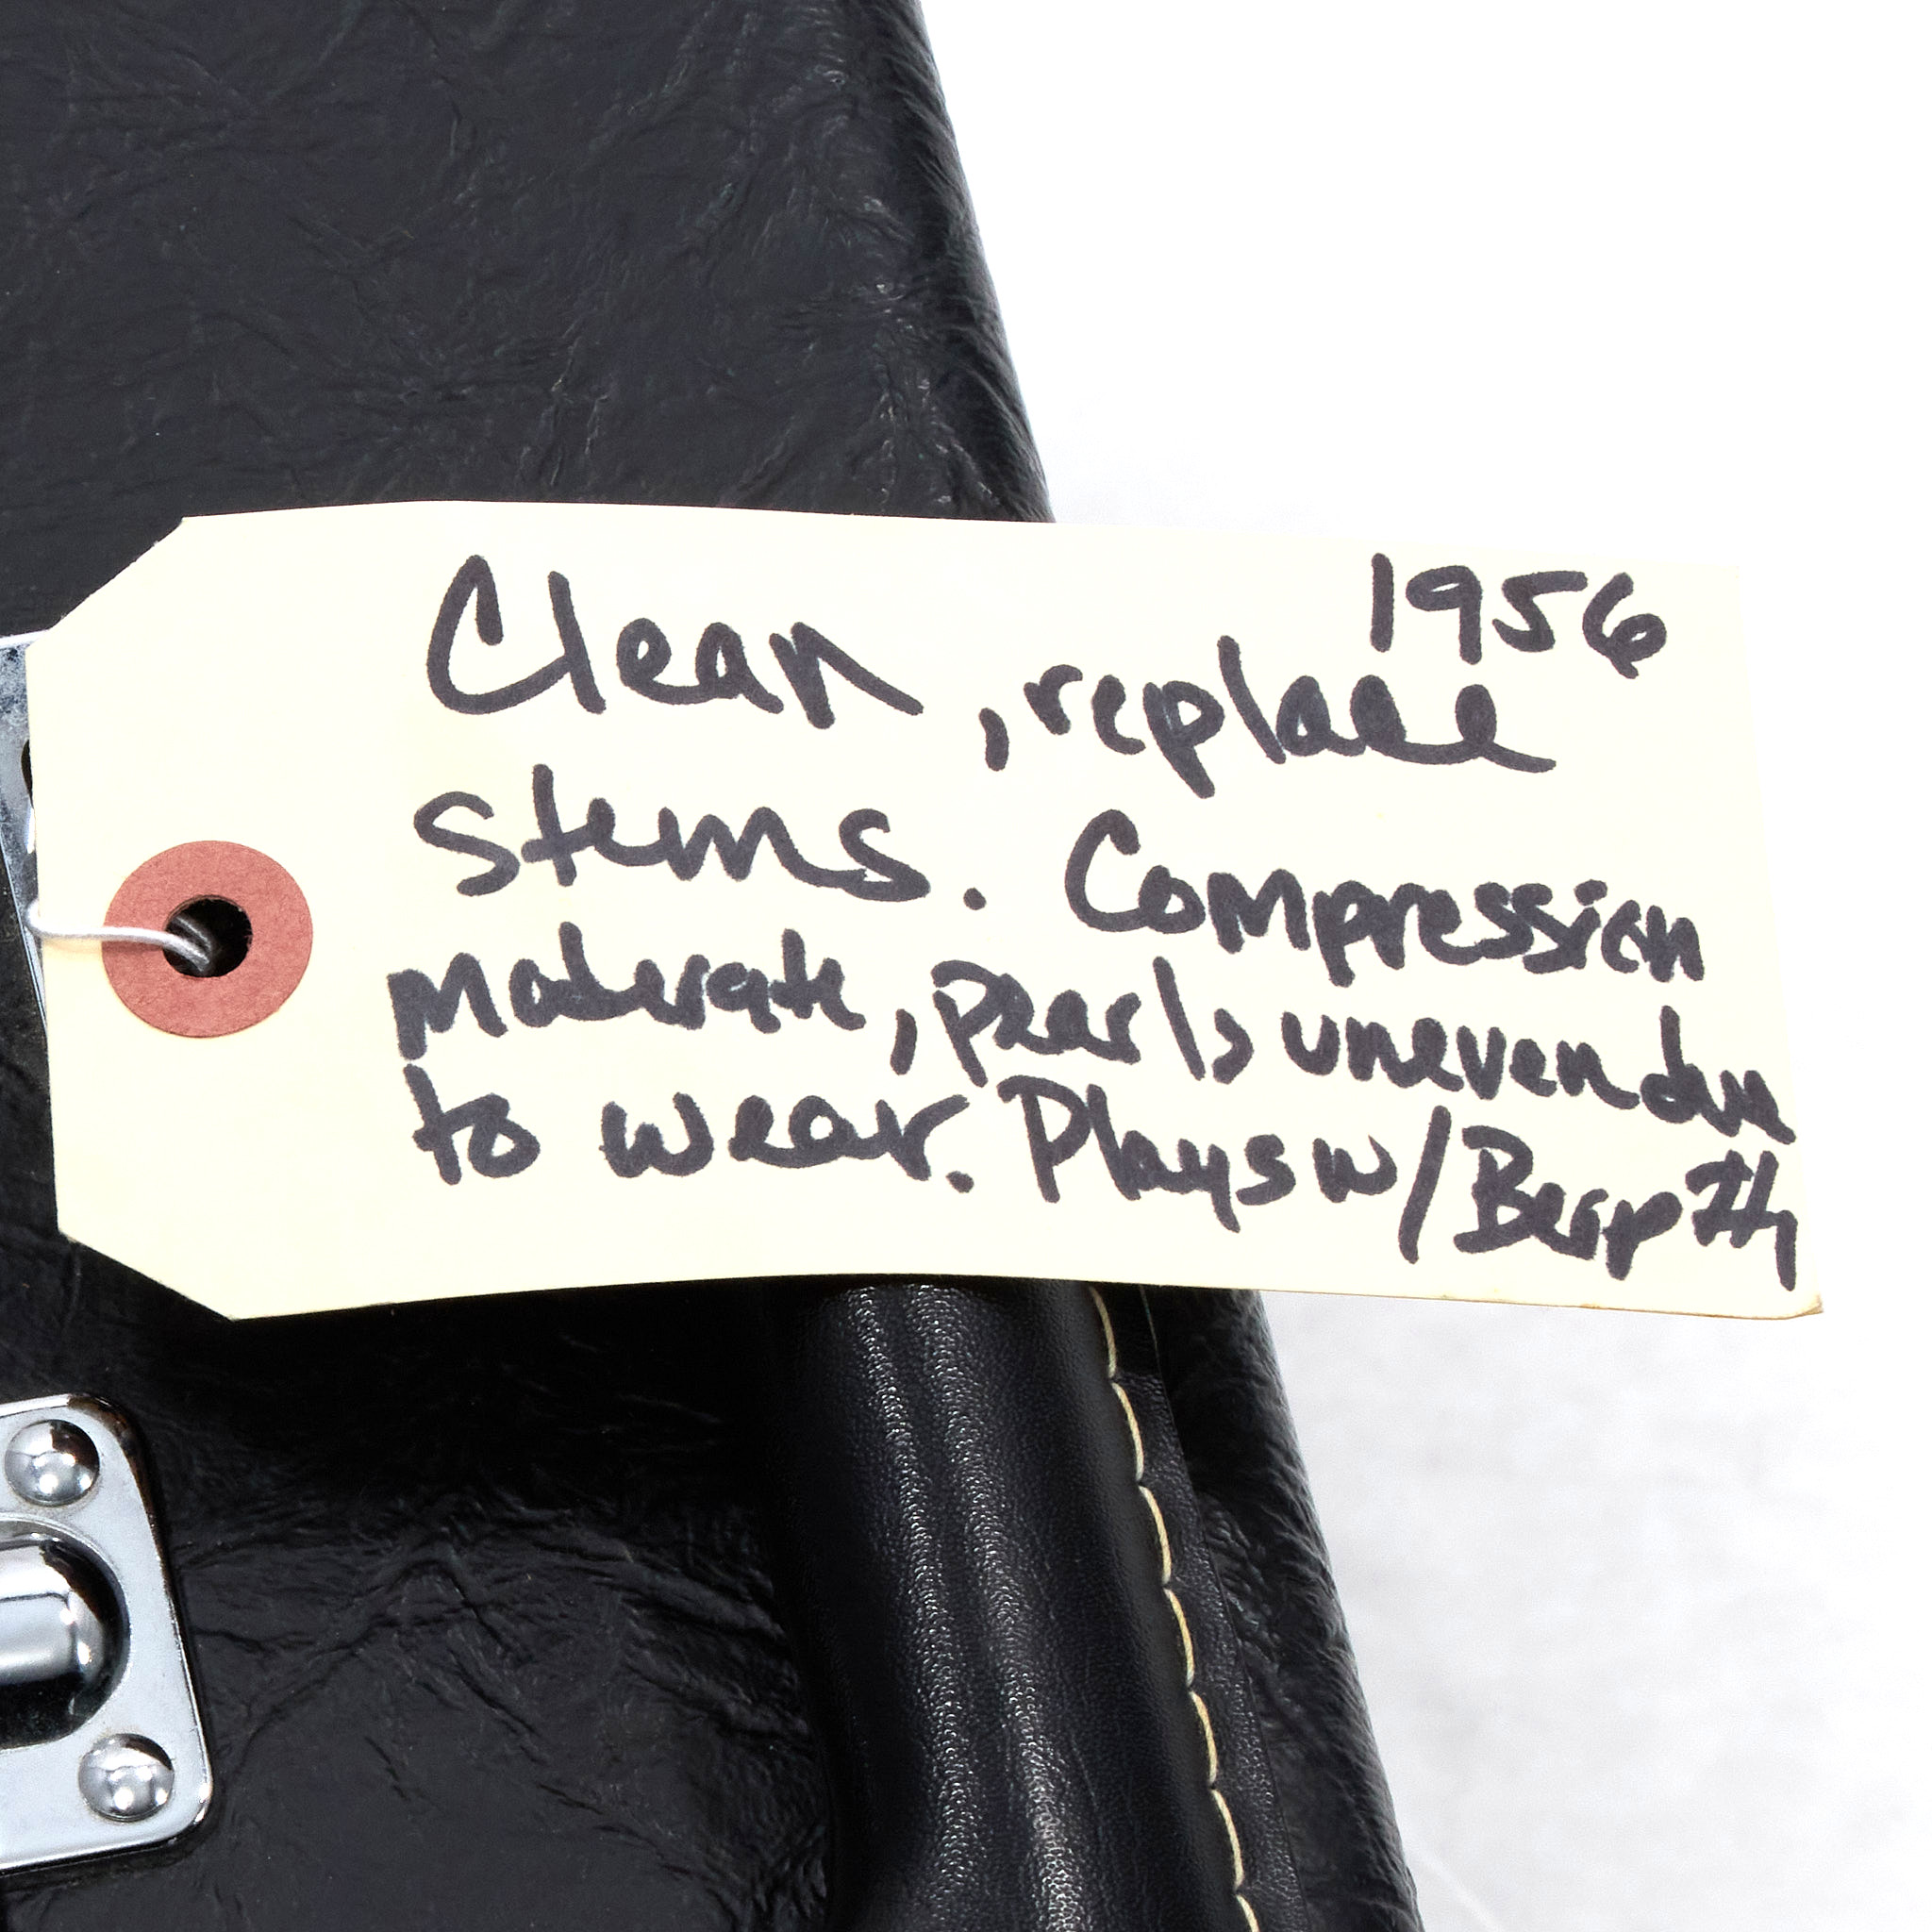 1956
Clean, replace
stems. Compression
Moderate, pearls uneven due
to wear. Plays w/